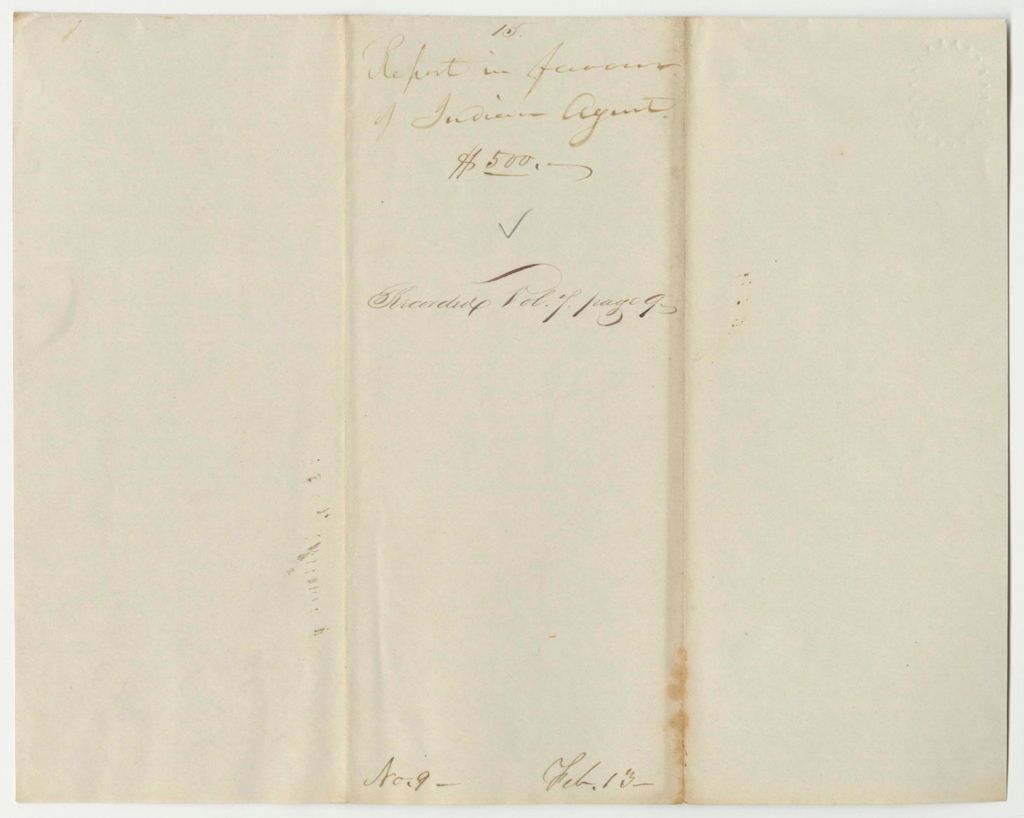 15.
Report in favour
of Indian Agent.
$500.—
Recorded Vol. 7. page 9
No. 9 —
Feb. 13 —